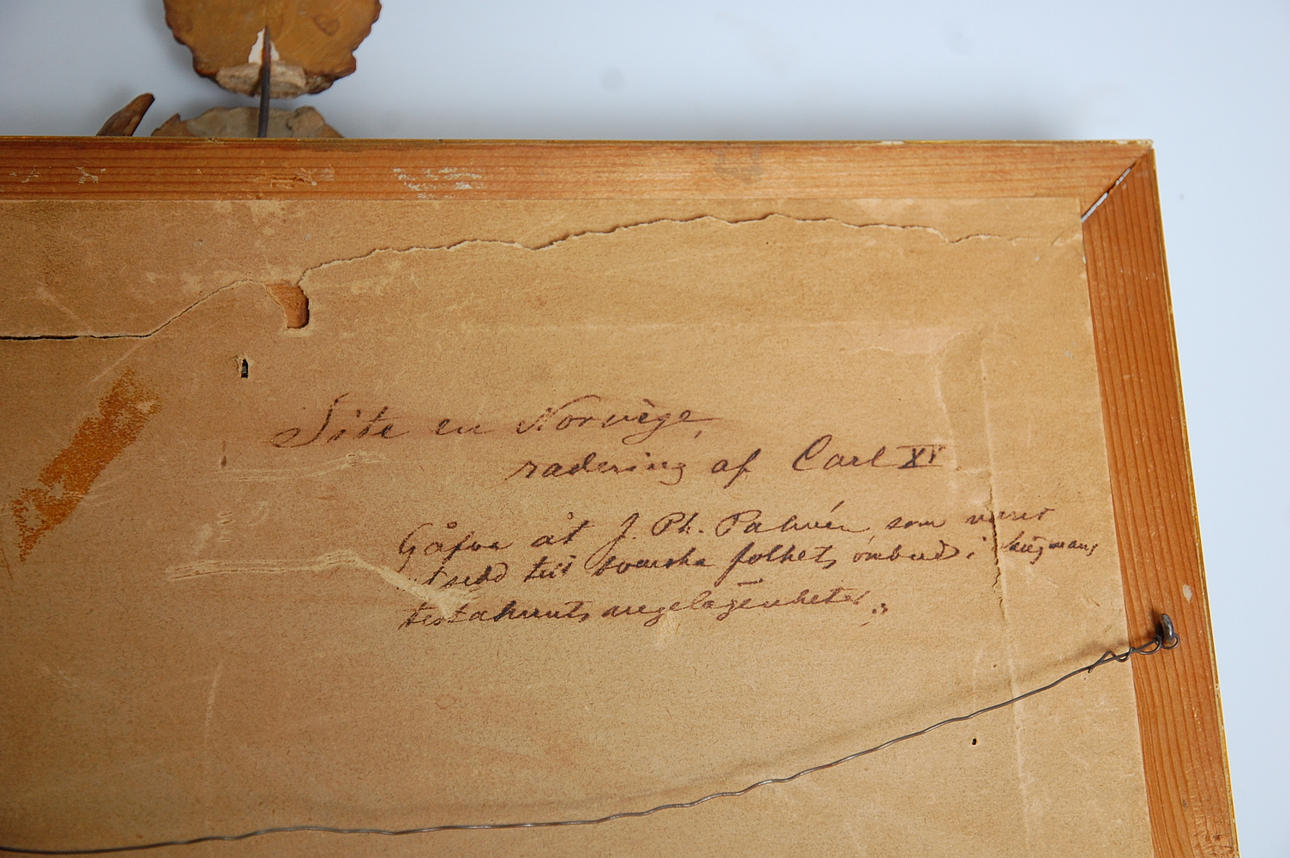 Site en Norvège,
radering af Carl XV
Gåfva åt J. Ph. Palmén som varit
utsedd till svenska folkets ombud i
testaments angelägenheter.